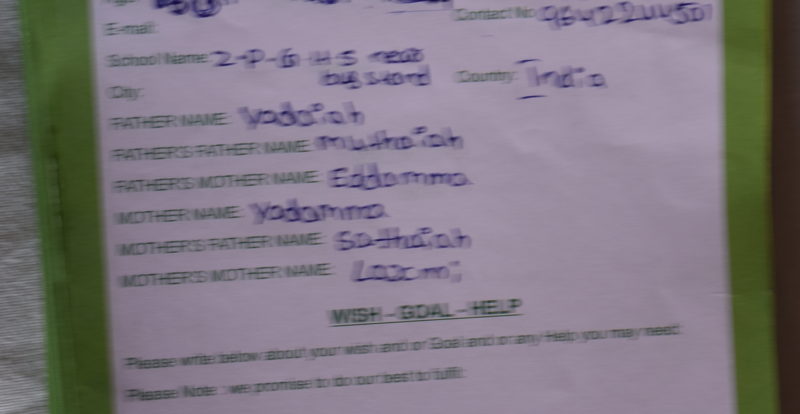 Contact No: 9642244501
E-mail:
School Name: Z-P-G-H-S near
bus stand Country: India
City:
FATHER NAME: Yadaiah
FATHER'S FATHER NAME: muthaiah
FATHER'S MOTHER NAME: Eddamma
MOTHER NAME: Yadamma
MOTHER'S FATHER NAME: Sathaiah
MOTHER'S MOTHER NAME: Laxmi
WISH – GOAL – HELP
Please write below about your wish and or Goal and or any Help you may need:
Please Note : we promise to do our best to fulfil: